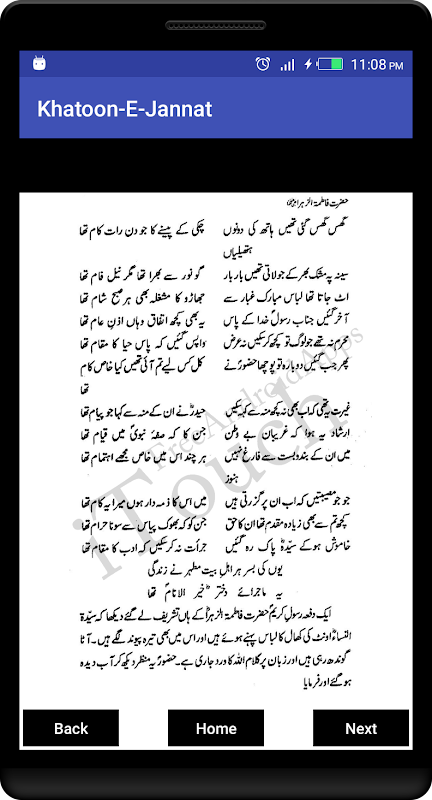 11:08 PM
Khatoon-E-Jannat
حضرت فاطمۃ الزہرا
گھس گھس گئی تھیں ہاتھ کی دونوں ہتھیلیاں چکی کے پیسنے کا جو دن رات کام تھا
سینہ پہ مشک بھر کے جو لاتی تھیں بار بار گو نور سے بھرا تھا مگر نیل فام تھا
اٹ جاتا تھا لباس مبارک غبار سے جھاڑو کا مشغلہ بھی ہر صبح شام تھا
آخر گئیں جناب رسولؐ خدا کے پاس یہ بھی کچھ اتفاق وہاں اذنِ عام تھا
محرم نہ تھے جو لوگ تو کچھ کر سکیں نہ عرض واپس گئیں کہ پاس حیا کا مقام تھا
پھر جب گئیں دوبارہ تو پوچھا حضورؐ نے کل کس لیے تم آئی تھیں کیا خاص کام تھا
غیرت یہ تھی کہ اب بھی نہ کچھ منہ سے کہہ سکیں حیدرؓ نے ان کے منہ سے کہا جو پیام تھا
ارشاد یہ ہوا کہ غریبان بے وطن جن کا کہ صفۂ نبویؐ میں قیام تھا
میں ان کے بندوبست سے فارغ نہیں ہنوز ہر چند اس میں خاص مجھے اہتمام تھا
جو جو مصیبتیں کہ اب ان پر گزرتی ہیں میں اس کا ذمہ دار ہوں میرا یہ کام تھا
کچھ تم سے بھی زیادہ مقدم تھا ان کا حق جن کو کہ بھوک پیاس سے سونا حرام تھا
خاموش ہو کے سیدہؓ پاک رہ گئیں جرأت نہ کر سکیں کہ ادب کا مقام تھا
یوں کی بسر ہر اہلِ بیت مطہر نے زندگی
یہ ماجرائے دختر خیر الانامؐ تھا
ایک دفعہ رسول کریمؐ حضرت فاطمۃ الزہراؓ کے ہاں تشریف لے گئے دیکھا کہ سیدۃ
النساءؓ اونٹ کی کھال کا لباس پہنے ہوئے ہیں اور اس میں بھی تیرہ پیوند لگے ہیں۔ آٹا
گوندھ رہی ہیں اور زبان پر کلام اللہ کا ورد جاری ہے۔ حضورؐ یہ منظر دیکھ کر آب دیدہ
ہو گئے اور فرمایا
iTouch
FreeAndroidApps
Back
Home
Next